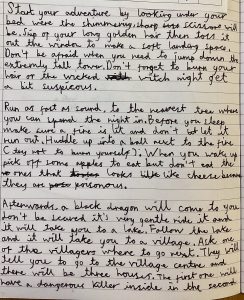 Start your adventure by looking under your
bed were the shimmering, sharp scissors will
be. Snip of your long golden hair then toss it
out the window to make a soft landing space.
Don't be afraid when you need to jump down the
extremly tall tower. Don't forget to burn your
hair or the wicked witch might get
a bit suspicous.
Run as fast as sound to the nearest tree where
you can spend the night in. Before you sleep
make sure a fire is lit and don't let it
run out. Huddle up into a ball next to the fire
(try not to burn yourself). When you wake up
pick off some apples to eat but don't eat the
ones that looks like cheese because
they are poisonous.
Afterwards, a black dragon will come to you
don't be scared it's very gentle ride it and
It will take you to a lake. Follow the lake
and it will take you to a village. Ask one
of the villagers where to go next. They will
tell you to go to the village centre and
there will be three houses. The first one will
have a dangerous killer inside in the second